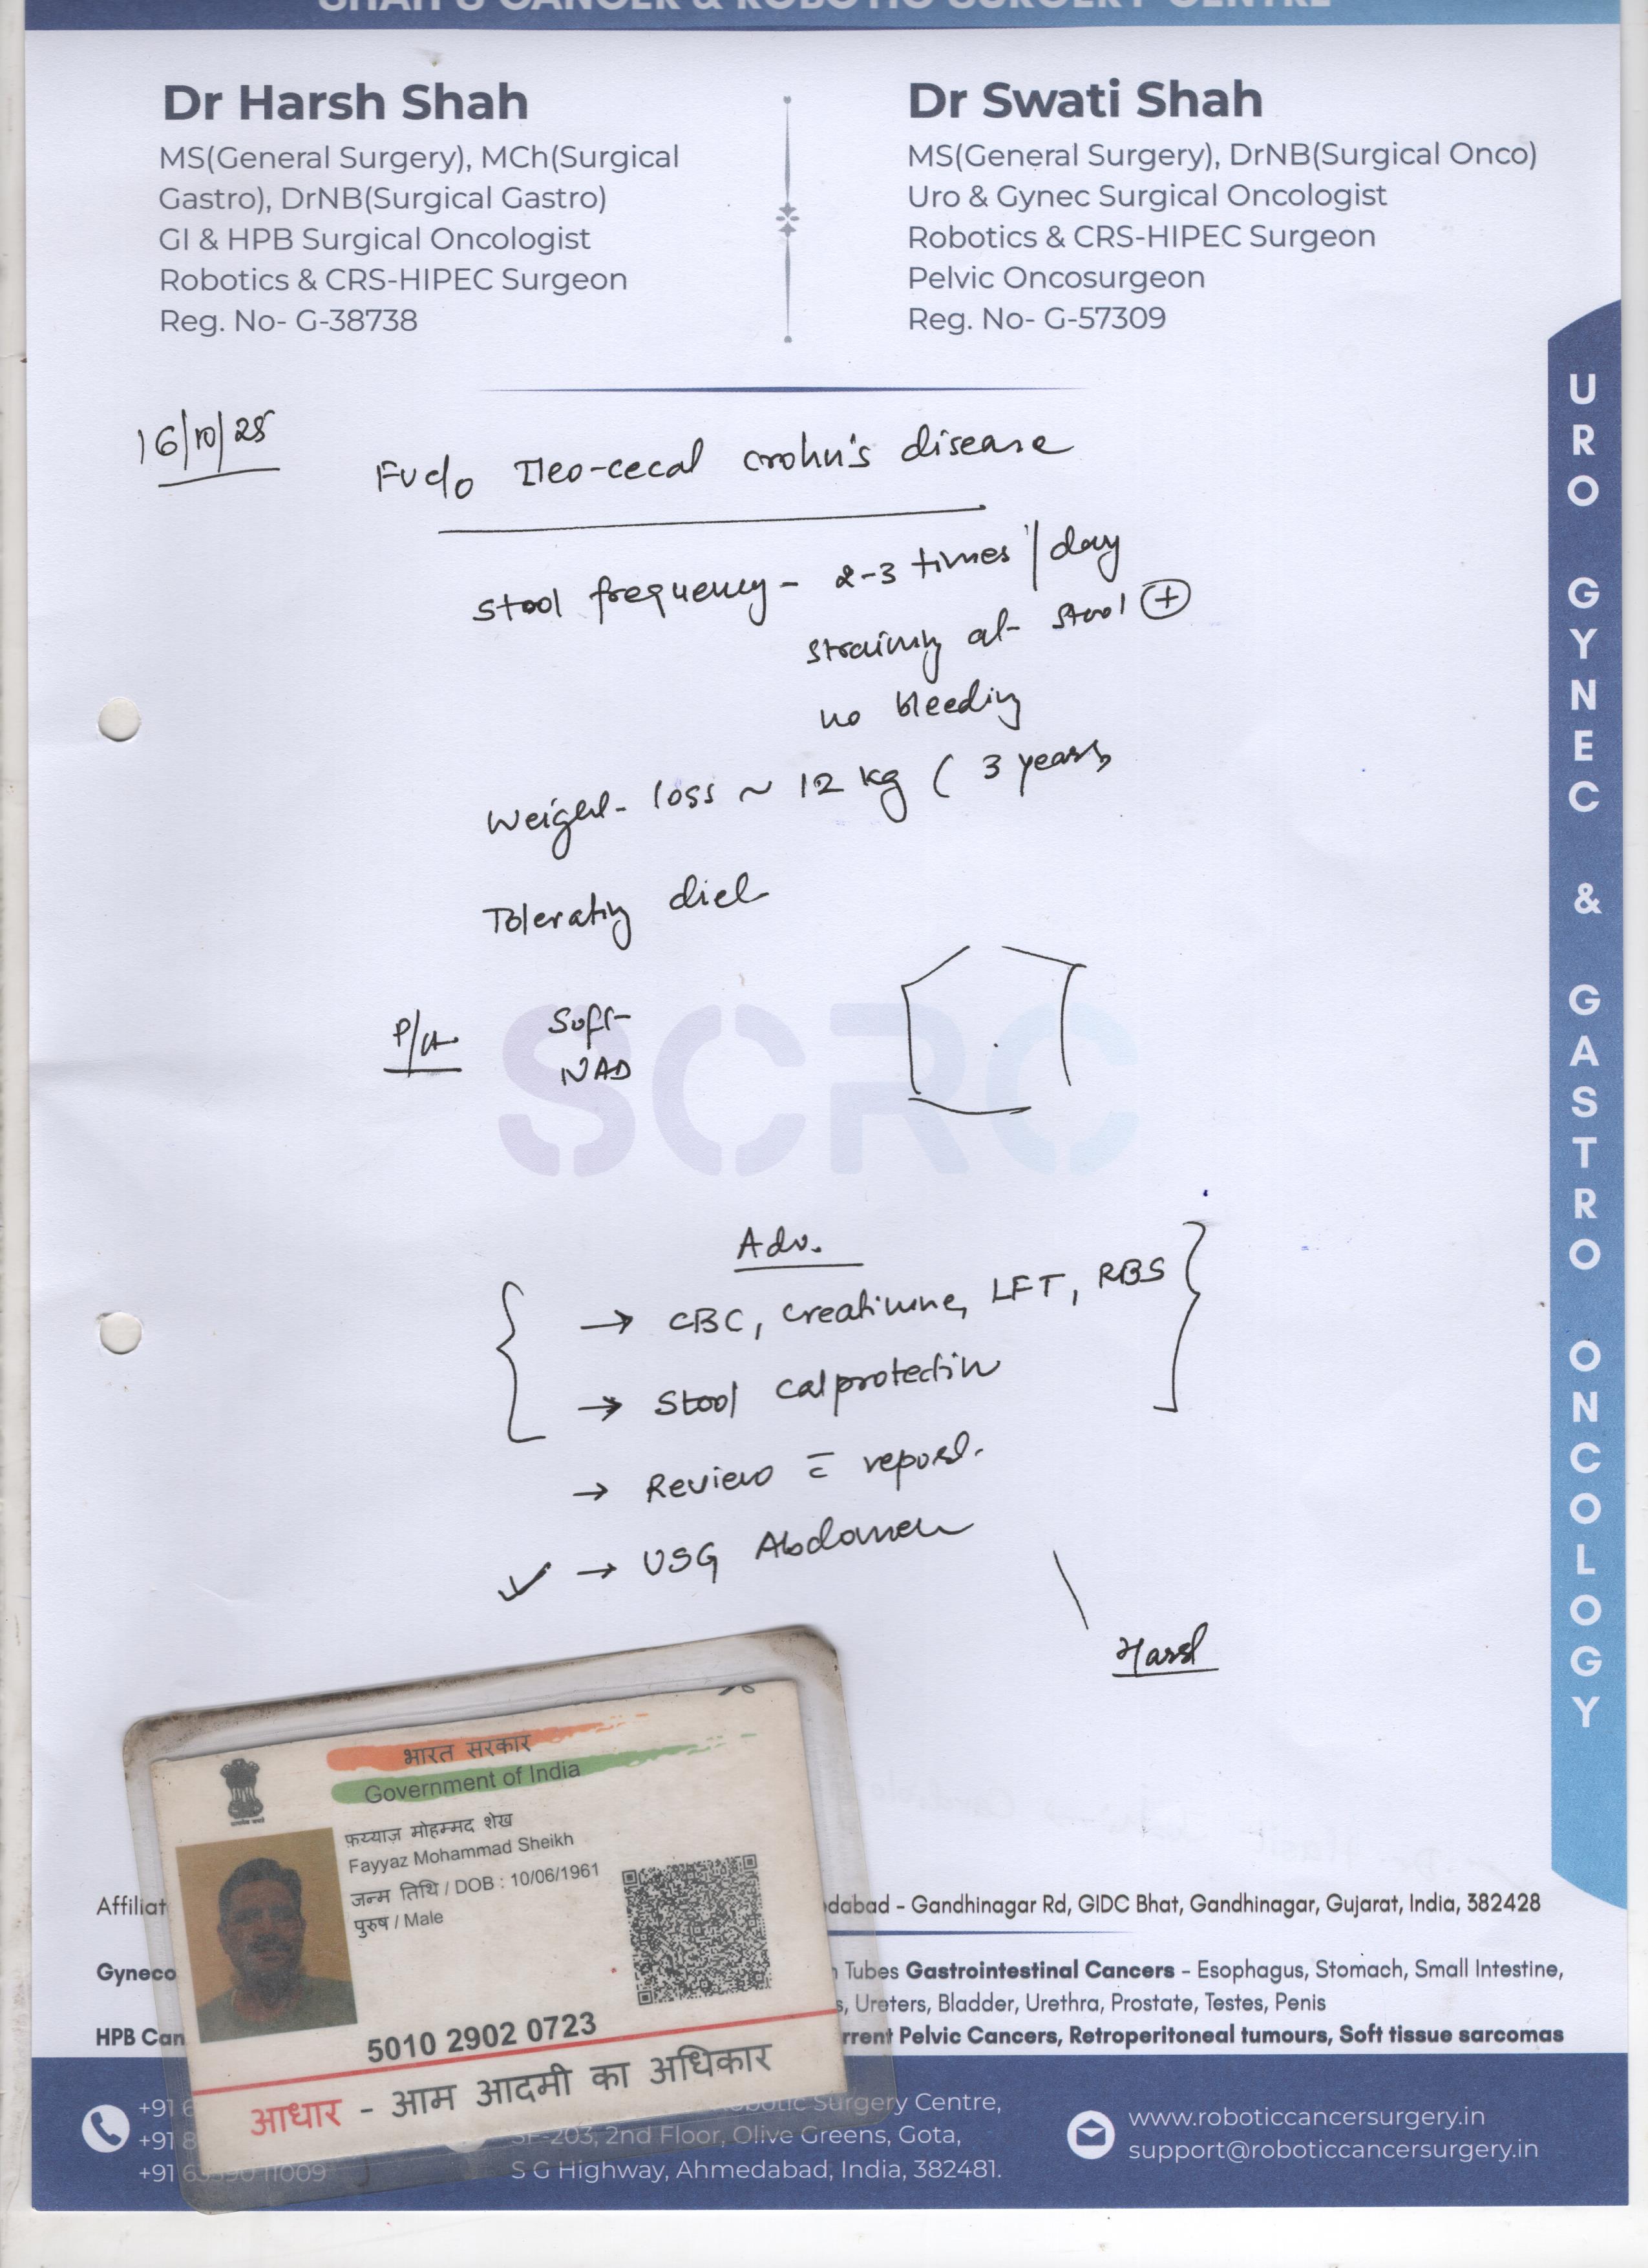 SHAH'S CANCER & ROBOTIC SURGERY CENTRE
Dr Harsh Shah
MS(General Surgery), MCh(Surgical
Gastro), DrNB(Surgical Gastro)
GI & HPB Surgical Oncologist
Robotics & CRS-HIPEC Surgeon
Reg. No- G-38738
Dr Swati Shah
MS(General Surgery), DrNB(Surgical Onco)
Uro & Gynec Surgical Oncologist
Robotics & CRS-HIPEC Surgeon
Pelvic Oncosurgeon
Reg. No- G-57309
URO GYNEC & GASTRO ONCOLOGY
16/10/25
FUC/o Ileo-cecal crohn's disease
Stool frequency - 2-3 times / day
straining at stool +
no bleeding
Weight loss ~ 12 kg ( 3 years
Tolerating diet
P/A Soft
NAD
SCRC
Adv.
→ CBC, creatinine, LFT, RBS
→ Stool calprotectin
→ Review c̄ report.
✓ → USG Abdomen
Harsh
भारत सरकार
Government of India
फ़य्याज़ मोहम्मद शेख
Fayyaz Mohammad Sheikh
जन्म तिथि / DOB : 10/06/1961
पुरुष / Male
5010 2902 0723
आधार - आम आदमी का अधिकार
Affiliat dabad - Gandhinagar Rd, GIDC Bhat, Gandhinagar, Gujarat, India, 382428
Gyneco Tubes Gastrointestinal Cancers - Esophagus, Stomach, Small Intestine,
s, Ureters, Bladder, Urethra, Prostate, Testes, Penis
HPB Can rrent Pelvic Cancers, Retroperitoneal tumours, Soft tissue sarcomas
+91 6
+91 8
+91 11009
Robotic Surgery Centre,
SF-203, 2nd Floor, Olive Greens, Gota,
S G Highway, Ahmedabad, India, 382481.
www.roboticcancersurgery.in
support@roboticcancersurgery.in